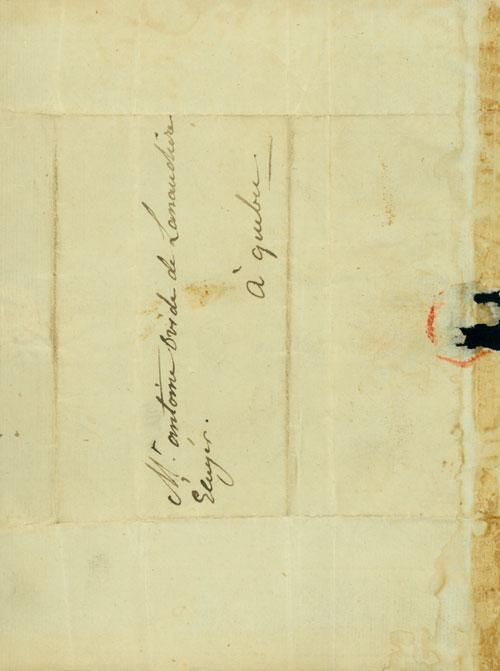 Mr. antoine Ovide de Lanaudière
Ecuyer.
à quebec